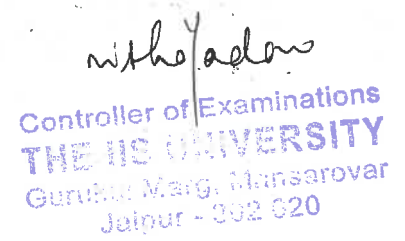 Controller of Examinations
THE IIS UNIVERSITY
Gurukul Marg, Mansarovar
Jaipur - 302 020